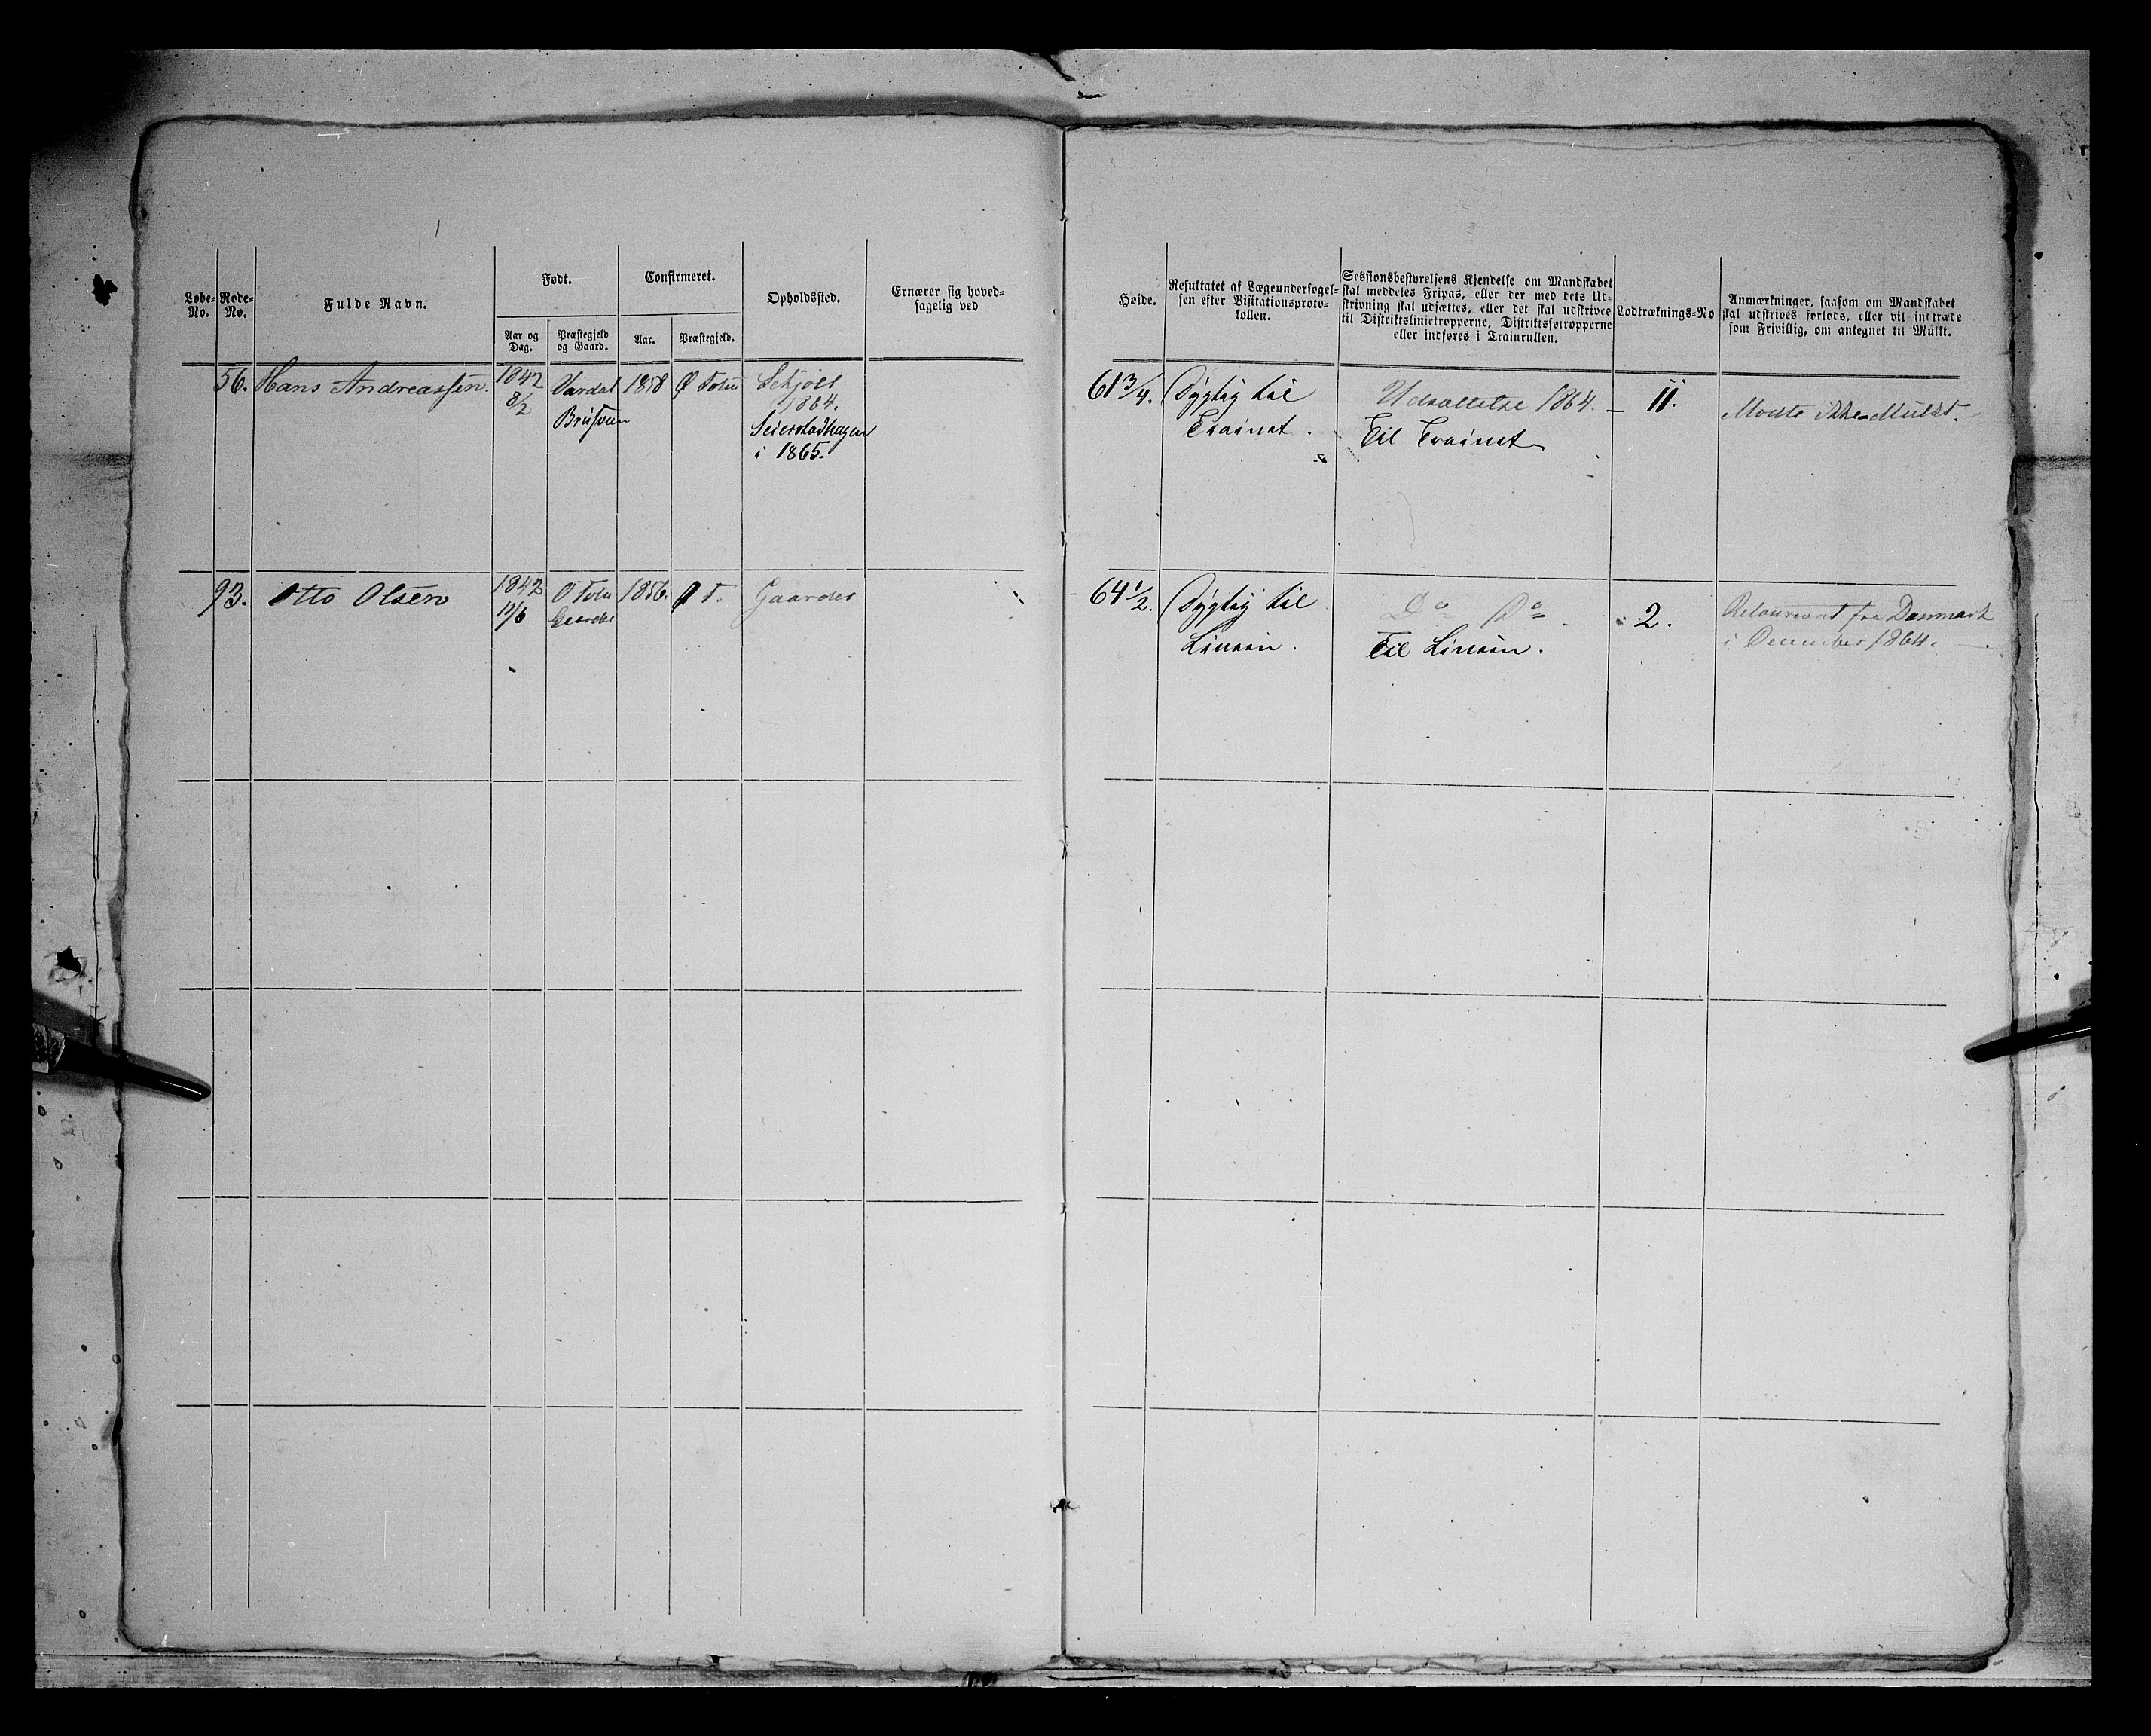 Løbe-
No.
Rode-
No.
Fulde Navn.
Født.
Aar og
Dag.
Præstegjeld
og Gaard.
Confirmeret.
Aar.
Præstegjeld.
Opholdssted.
Ernærer sig hoved-
sagelig ved
Høide.
Resultatet af Lægeundersøgel-
sen efter Visitationsproto-
kollen.
Sessionsbestyrelsens Kjendelse om Mandskabet
skal meddeles Fripas, eller der med dets Ud-
skrivning skal udsættes, eller det skal udskrives
til Distriktslinietropperne, Distriktsfotropperne
eller indføres i Trainrullen.
Lodtræknings-No
Anmærkninger, saasom om Mandskabet
skal udskrives forlods, eller vil indtræde
som Frivillig, om antegnet til Mulkt.
56.
Hans Andreassen.
1842
8/2
Vardal
1858
Ø Toten
1864.
Seierstadhagen
i 1865.
61 3/4.
Dygtig til
Trainet.
Udsættelse 1864.
Til Trainet
11.
Mødte ikke=Mulkt.
93.
Otto Olsen
1842
Ø Toten
Gaarder
1856.
Ø T.
Gaarder
64 1/2.
Dygtig til
Linien.
Do Do.
Til Linien.
2.
Retourneret fra Danmark
i December 1864.